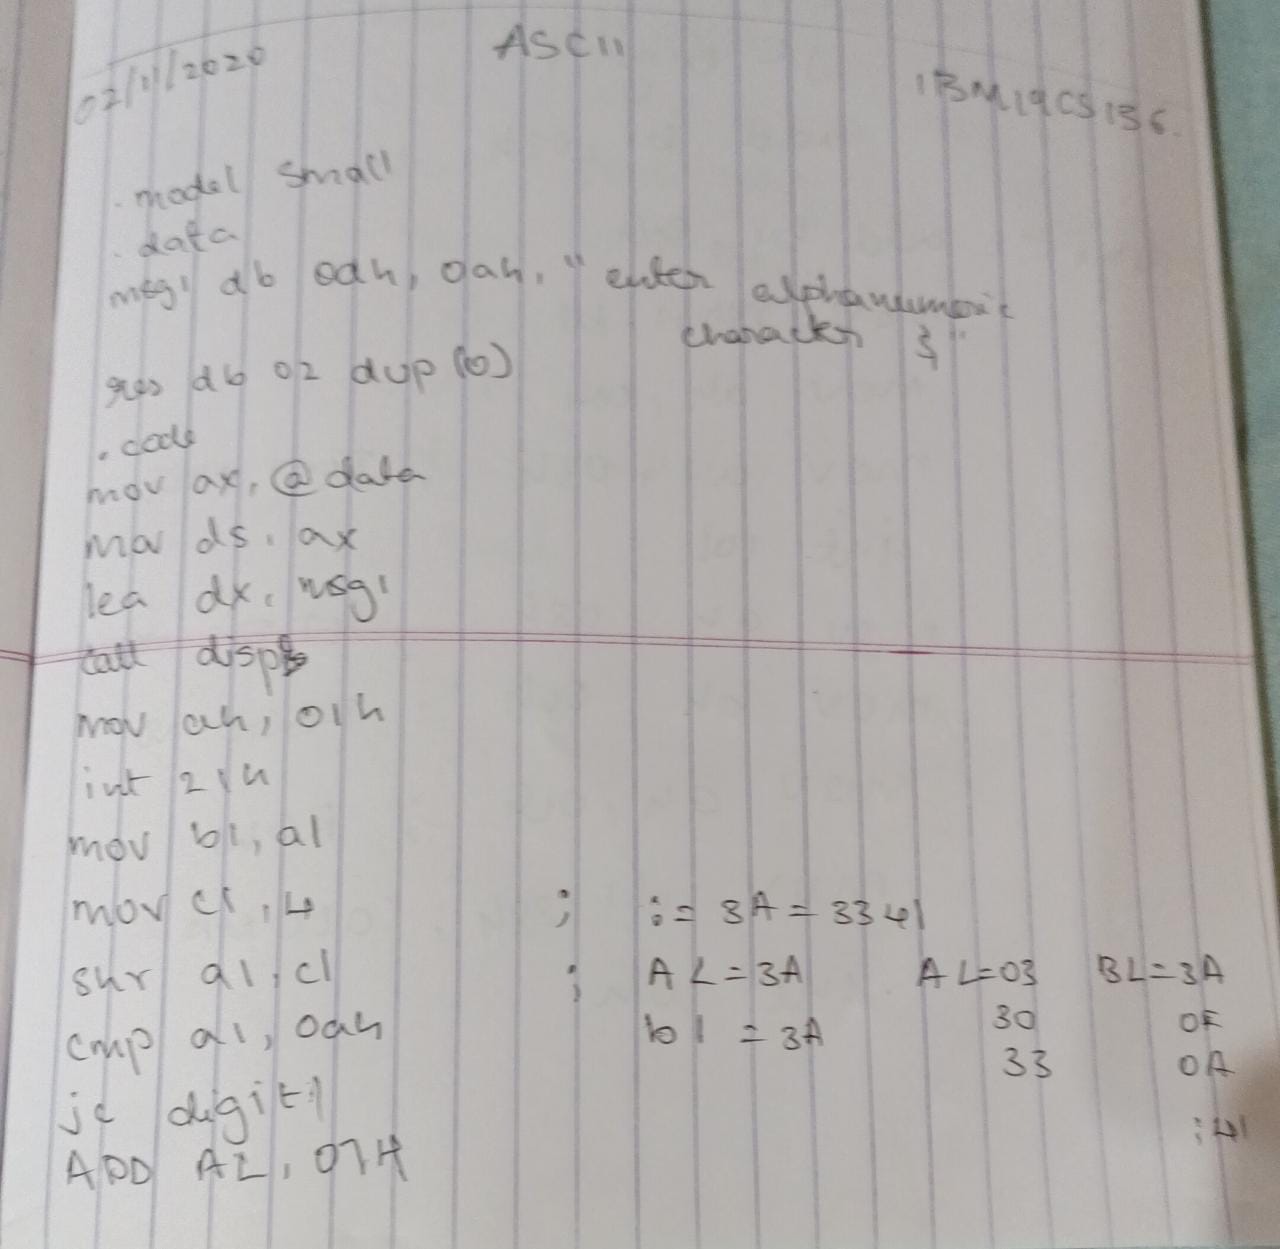 ASCII
02/11/2020
1BM19CS156.
.model small
.data
msg1 db odh, oah, "enter alphanumeric
character $"
res db 02 dup (0)
.code
mov ax, @data
mov ds, ax
lea dx, msg1
call disp
mov ah, 01h
int 21h
mov bl, al
mov cl, 4 ; := 3A = 3341
shr al, cl ; AL = 3A AL=03 BL=3A
cmp al, oah bl = 3A 30 0F
33 0A
jc digit1
:41
ADD AL, 07H